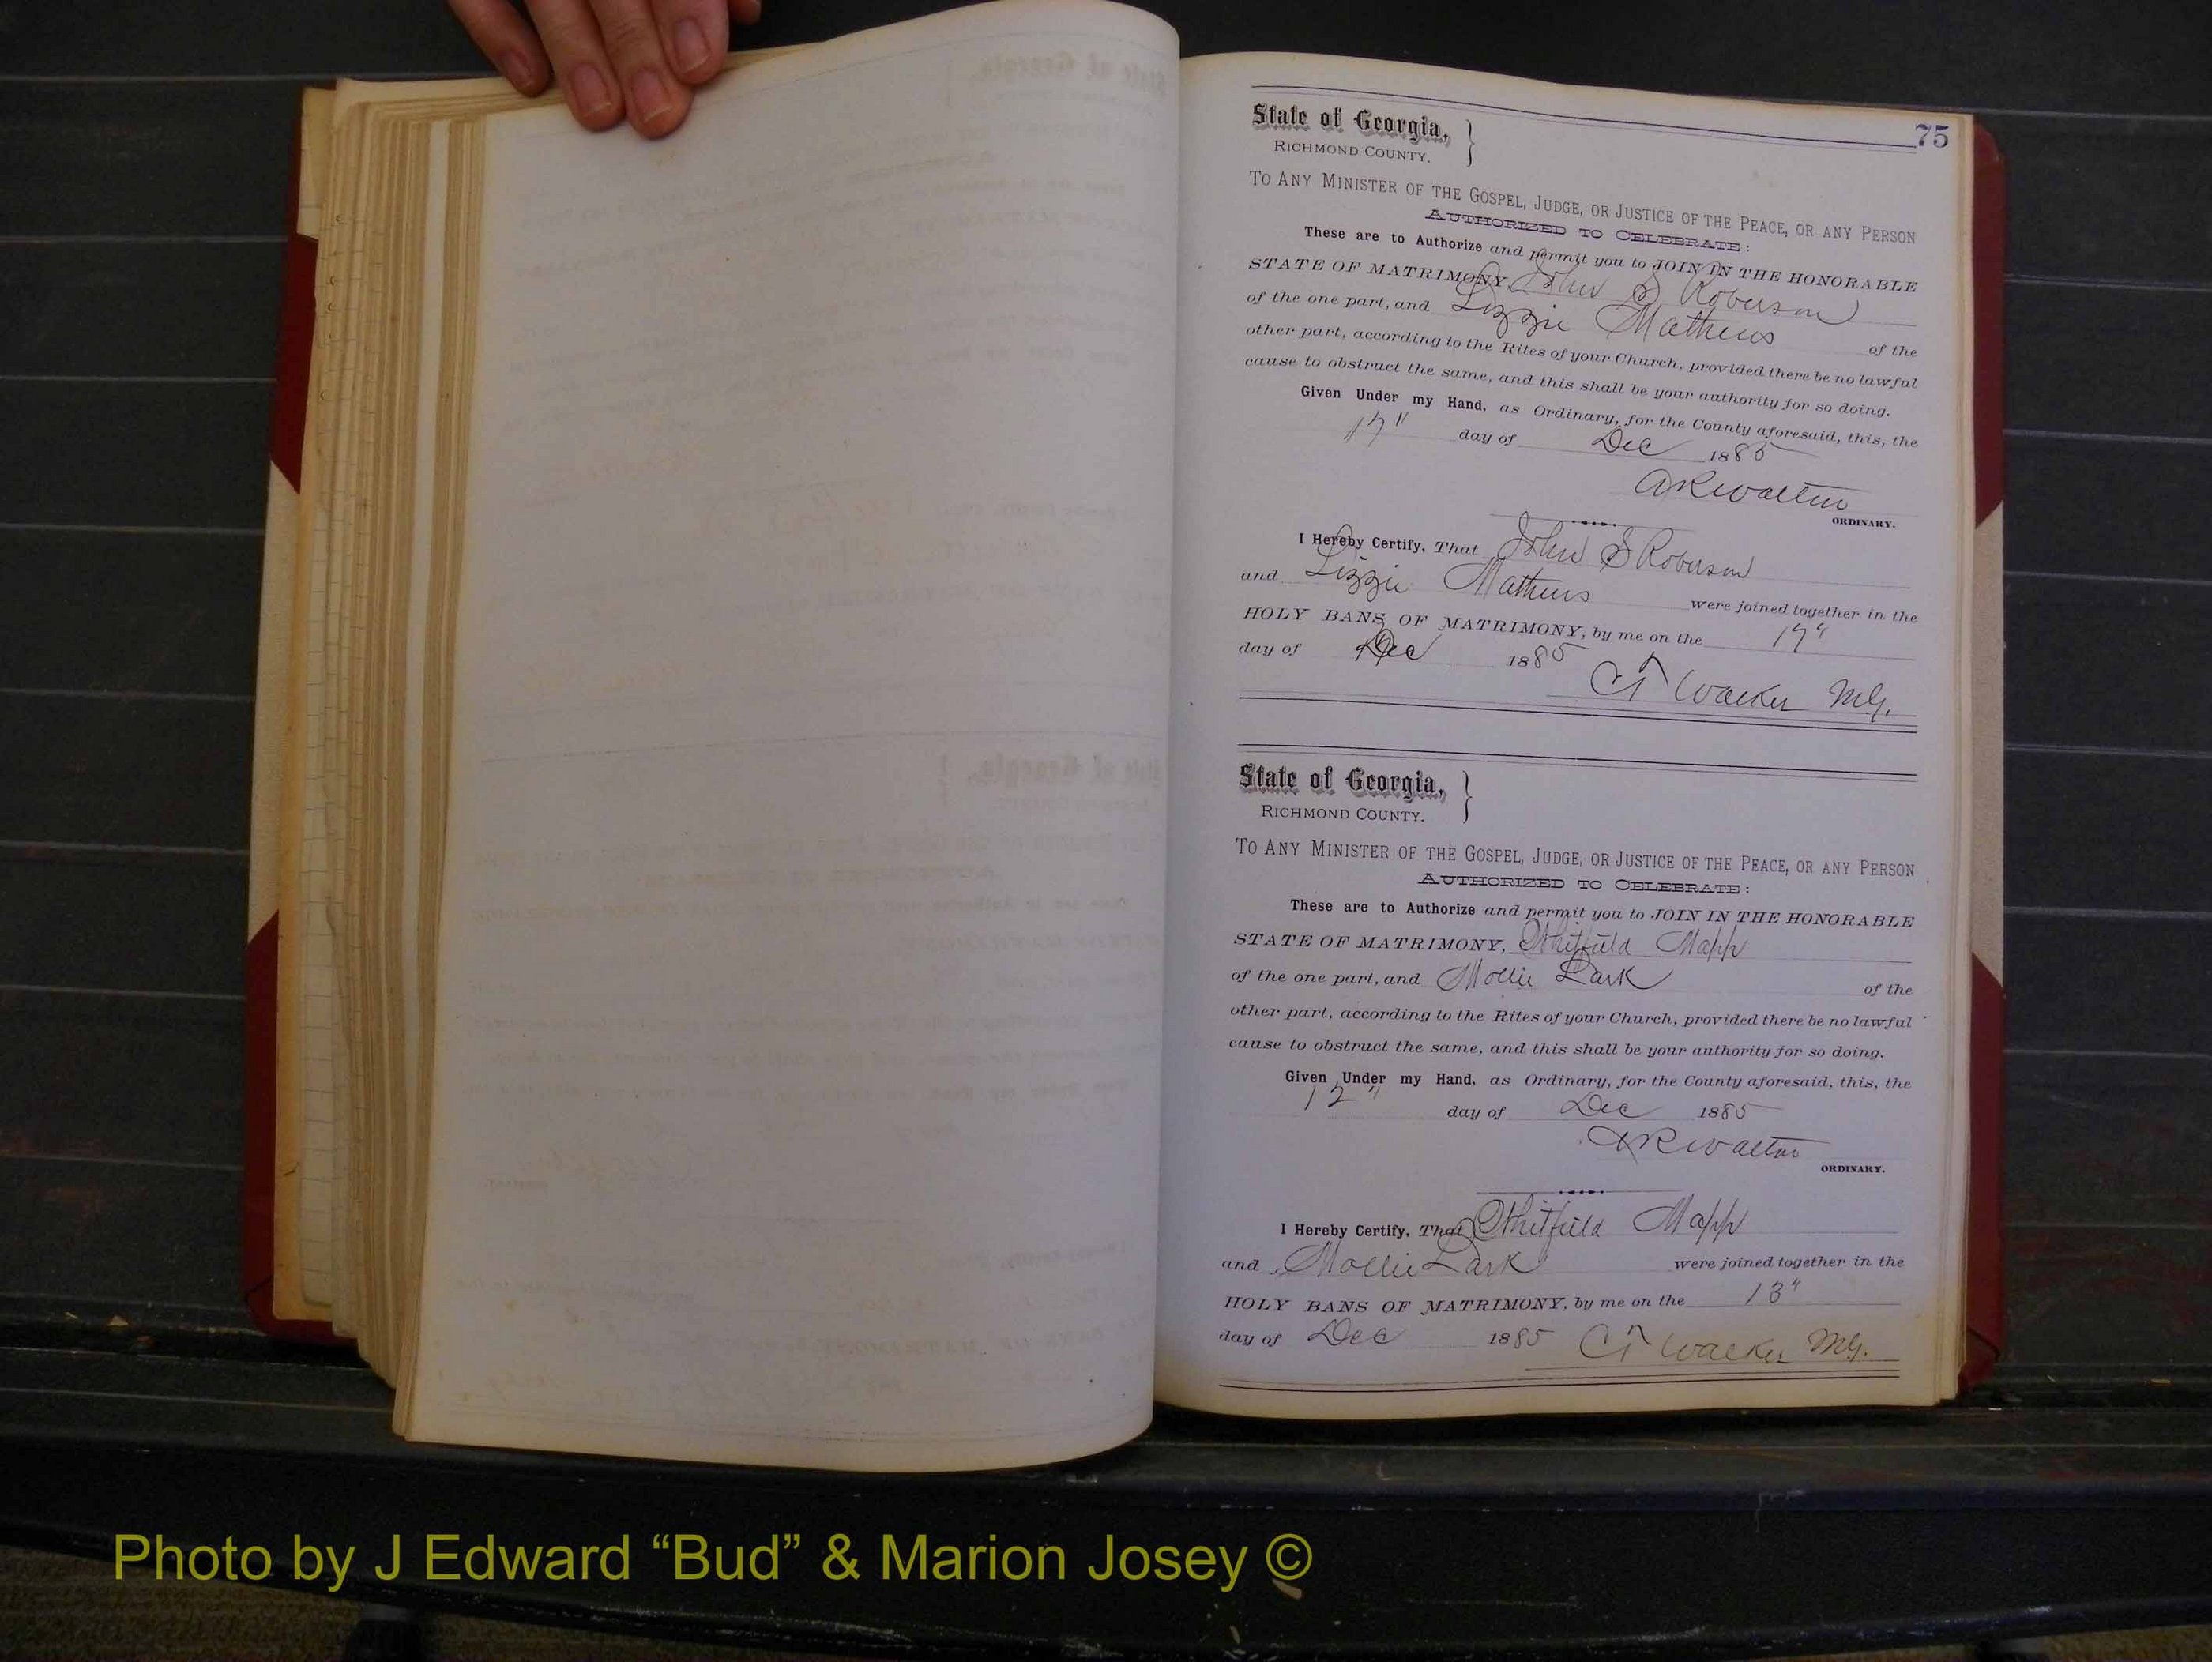 75
State of Georgia,
RICHMOND COUNTY.
TO ANY MINISTER OF THE GOSPEL, JUDGE, OR JUSTICE OF THE PEACE, OR ANY PERSON
AUTHORIZED TO CELEBRATE:
These are to Authorize and permit you to JOIN IN THE HONORABLE
STATE OF MATRIMONY, John S Roberson
of the one part, and Lizzie Mathews of the
other part, according to the Rites of your Church, provided there be no lawful
cause to obstruct the same, and this shall be your authority for so doing.
Given Under my Hand, as Ordinary, for the County aforesaid, this, the
17" day of Dec 1885
A R Walton
ORDINARY.
I Hereby Certify, That John S Roberson
and Lizzie Mathews were joined together in the
HOLY BANS OF MATRIMONY, by me on the 17"
day of Dec 1885
C T Walker M.G.
State of Georgia,
RICHMOND COUNTY.
TO ANY MINISTER OF THE GOSPEL, JUDGE, OR JUSTICE OF THE PEACE, OR ANY PERSON
AUTHORIZED TO CELEBRATE:
These are to Authorize and permit you to JOIN IN THE HONORABLE
STATE OF MATRIMONY, Whitfield Mapp
of the one part, and Mollie Lark of the
other part, according to the Rites of your Church, provided there be no lawful
cause to obstruct the same, and this shall be your authority for so doing.
Given Under my Hand, as Ordinary, for the County aforesaid, this, the
12" day of Dec 1885
A R Walton
ORDINARY.
I Hereby Certify, That Whitfield Mapp
and Mollie Lark were joined together in the
HOLY BANS OF MATRIMONY, by me on the 13"
day of Dec 1885 C T Walker M.G.
Photo by J Edward “Bud” & Marion Josey ©